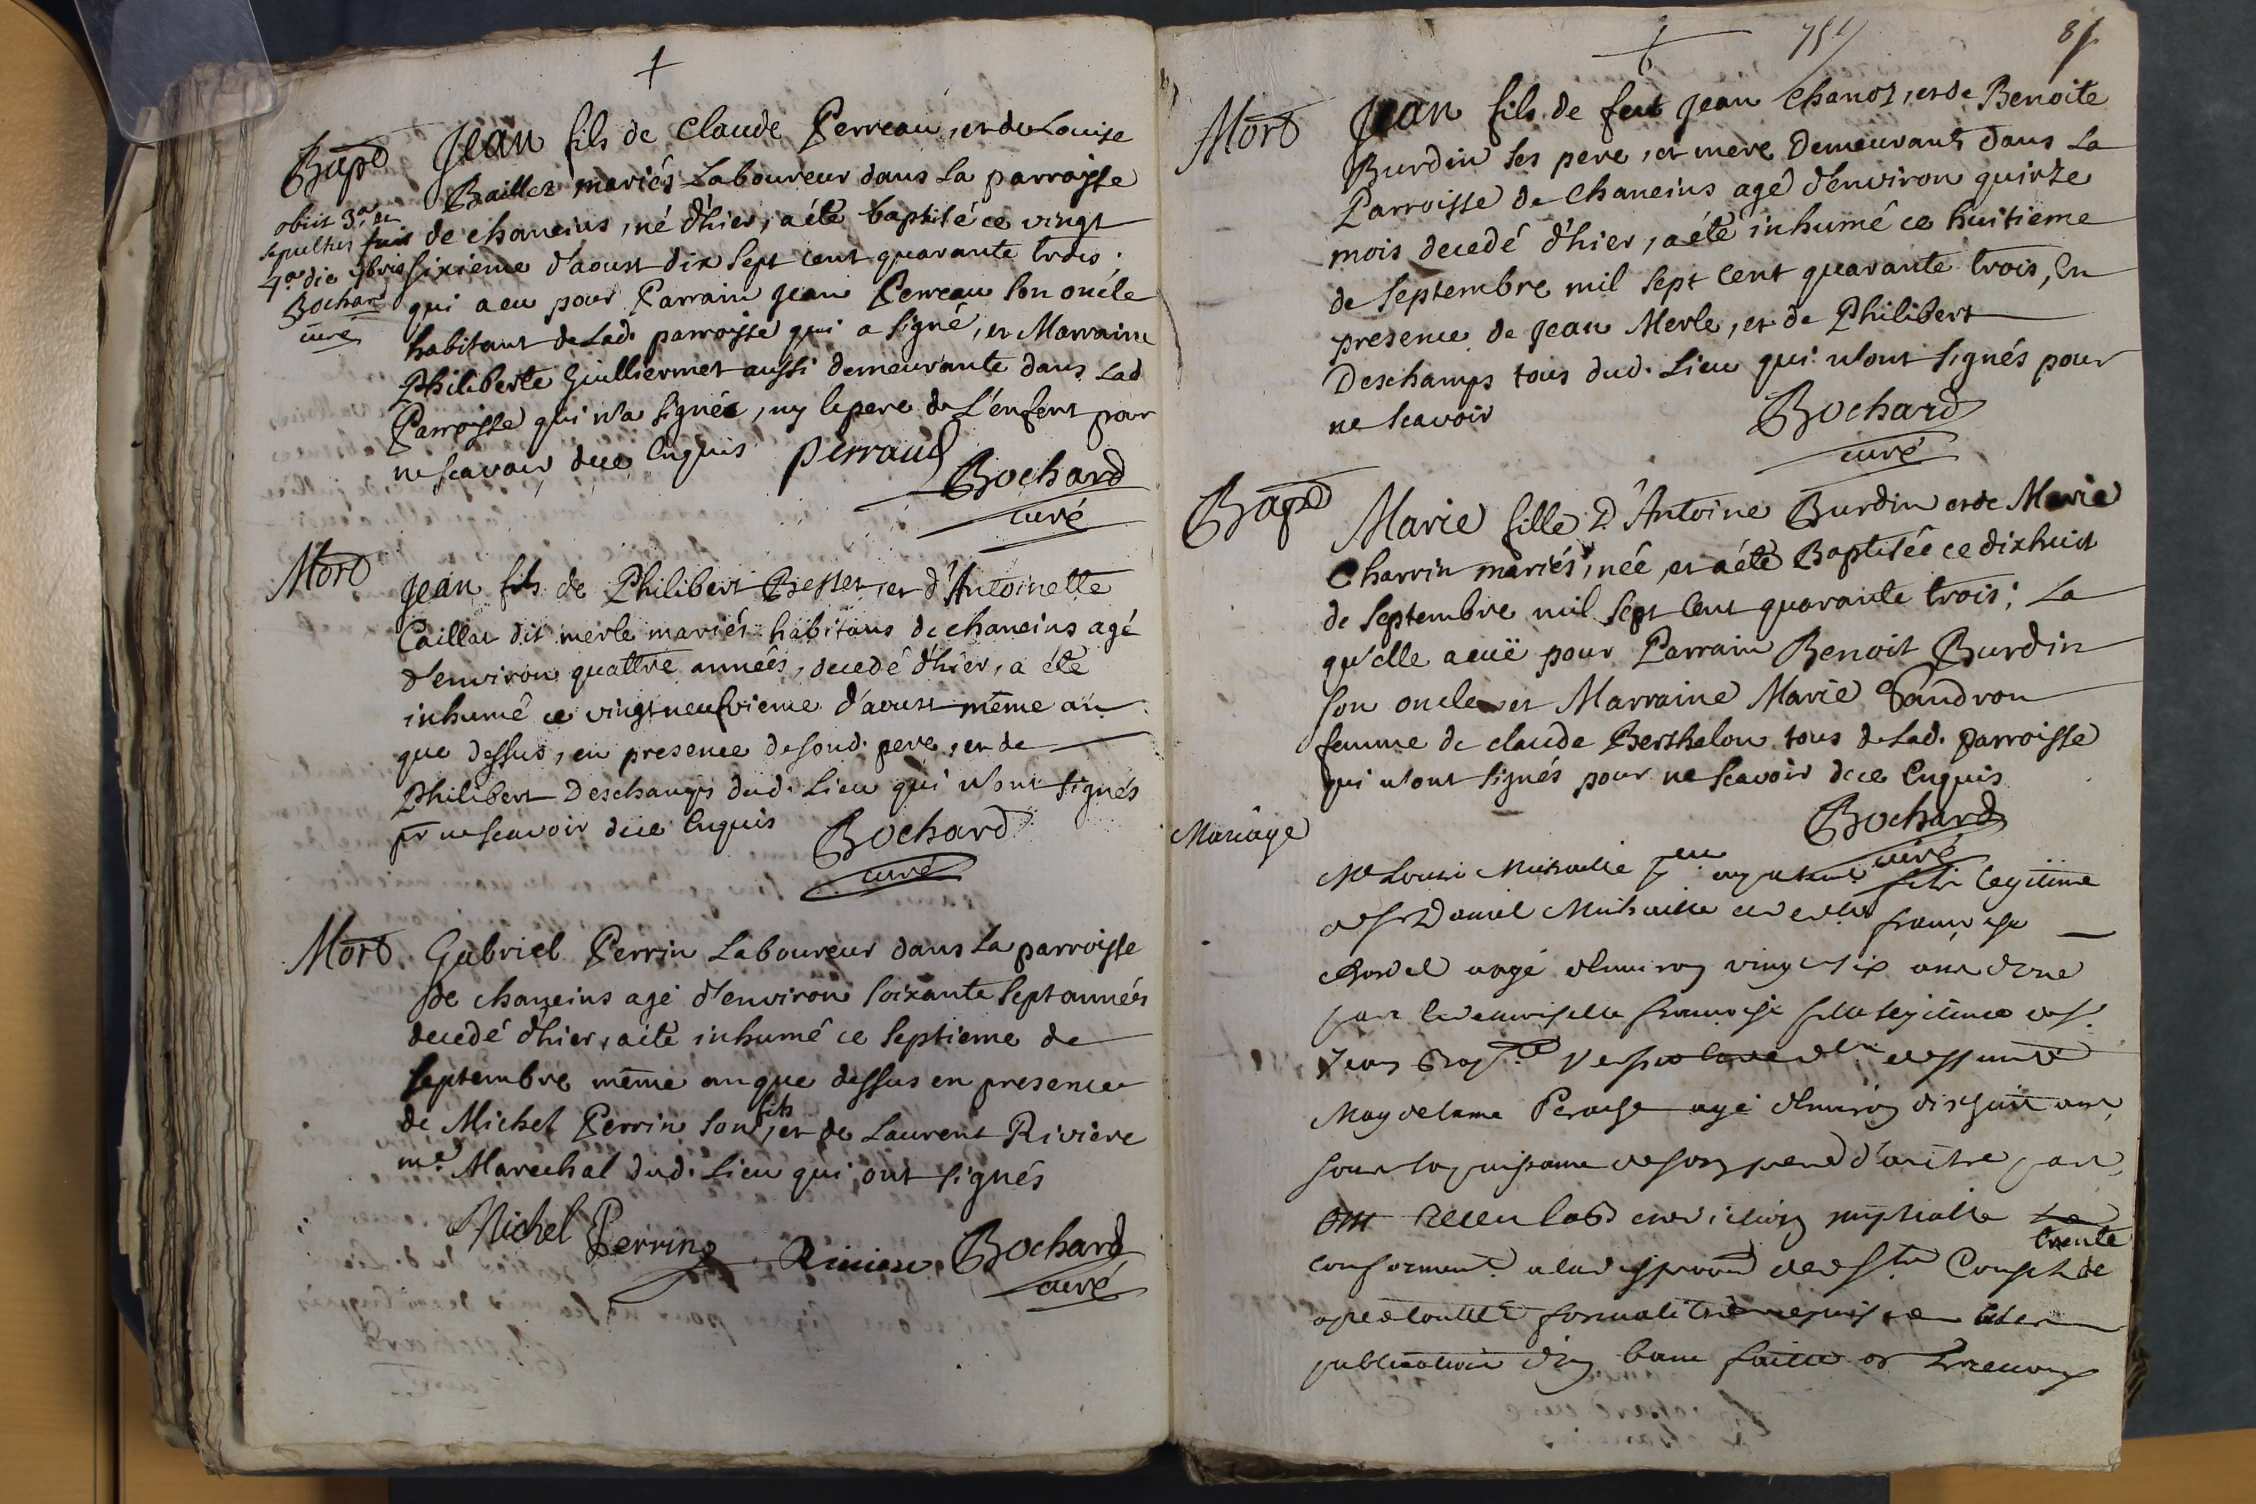 Bapt
obiit 3.a et
sepultus fuit
4.a die 7bris
Bochard
curé
Jean fils de Claude Perreau, et de Louise
Baillet mariés Laboureur dans La parroisse
de chaneins, né d'hier, a été baptisé ce vingt
sixieme d'aoust dix sept cent quarante trois.
qui a eu pour Parrain Jean Perreau son oncle
habitant de Lad. parroisse qui a signé, et Marraine
Philiberte Guilliermet aussi demeurante dans Lad
Parroisse qui n'a signée, ny le pere de L'enfent pour
ne scavoir, de ce Enquis perraud
Bochard
curé
Mort
Jean fils de Philibert Besset, et d'Antoinette
Caillat dit merle mariés habitans de chaneins agé
d'environ quattre années, decedé d'hier, a été
inhumé ce vingt neufvieme d'aoust même an
que dessus, en presence de sond. pere, et de
Philibert Deschamps dud. Lieu qui n'ont signés
pr ne scavoir de ce Enquis
Bochard
curé
Mort
Gabriel Perrin Laboureur dans La parroisse
de chaneins agé d'environ soixante sept années
decedé d'hier, a été inhumé ce septieme de
septembre même an que dessus en presence
de Michel Perrin son fils, et de Laurent Riviere
me. Marechal dud. Lieu qui ont signés
Michel Perrin Riviere Bochard
curé
751
81
Mort
Jean fils de feu Jean Chanoz, et de Benoite
Burdin ses pere, et mere Demeurants dans La
Parroisse de Chaneins agé d'environ quinze
mois decedé d'hier, a été inhumé ce huitieme
de septembre mil sept cent quarante trois, En
presence de Jean Merle, et de Philibert
Deschamps tous dud. Lieu qui n'ont signés pour
ne scavoir
Bochard
curé
Bapt
Marie fille D'Antoine Burdin et de Marie
Charrin mariés, née, et a été Baptisée ce dixhuit
de septembre mil sept cent quarante trois; La
qu'elle a euë pour Parrain Benoit Burdin
son oncle et Marraine Marie Tandron
femme de claude Berthelon tous de Lad. parroisse
qui n'ont signés pour ne scavoir de ce Enquis
Bochard
curé
Mariage
Me Louis fils legitime
de Sr Daniel et de françoise
aagé d'environ vingt six ans d'une
part et demoiselle françoise fille legitime de Sr
Jean
Magdelaine agé d'environ dixhuit ans
sous la puissance de son pere d'autre part
ont receu la benediction nuptialle
conformement a la du St Concile de trente
apres toutte formalité
publication d'un banc faitte